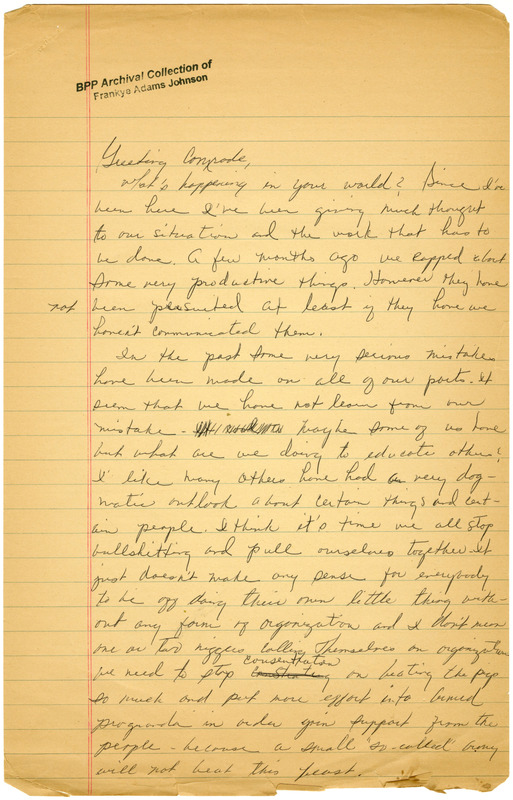 BPP Archival Collection of
Frankye Adams Johnson
Greeting Comrade,
what's happening in your world? Since I've
been here I've been giving much thought
to our situation and the work that has to
be done. A few months ago we rapped about
some very productive things. However they have
not been pursuited at least if they have we
haven't communicated them.
In the past some very serious mistakes
have been made on all of our parts. It
seem that we have not learn from our
mistake - maybe some of us have
but what are we doing to educate others?
I like many others have had a very dog-
matic outlook about certain things and cert-
ain people. I think it's time we all stop
bullshitting and pull ourselves together. It
just doesn't make any sense for everybody
to be off doing their own little thing with-
out any form of organization and I don't mean
one or two niggers calling themselves an organization
we need to stop on beating the pigs
so much and put more effort into armed
propranda in order gain support from the
people - because a small so-called army
will not beat this beast.